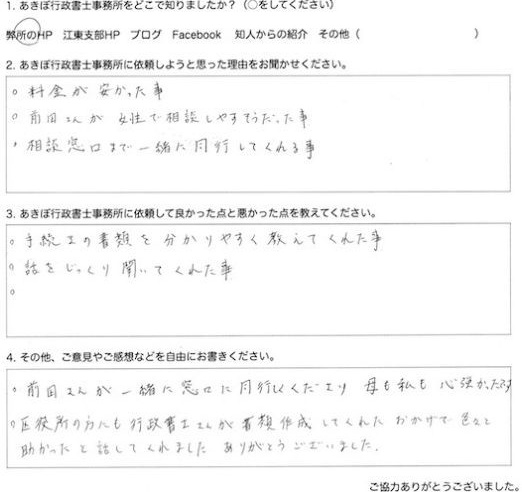 1. あきぼ行政書士事務所をどこで知りましたか？（○をしてください）
弊所のHP　江東支部HP　ブログ　Facebook　知人からの紹介　その他（　　　　　　　　）
2. あきぼ行政書士事務所に依頼しようと思った理由をお聞かせください。
○ 料金が安かった事
○ 前田さんが女性で相談しやすそうだった事
・ 相談窓口まで一緒に同行してくれる事
3. あきぼ行政書士事務所に依頼して良かった点と悪かった点を教えてください。
○ 手続上の書類を分かりやすく教えてくれた事
○ 話をじっくり聞いてくれた事
○
4. その他、ご意見やご感想などを自由にお書きください。
○ 前田さんが一緒に窓口に同行してくださり 母も私も心強かったです
○ 区役所の方にも行政書士さんが書類作成してくれたおかげで色々と
助かったと話してくれました ありがとうございました.
ご協力ありがとうございました。